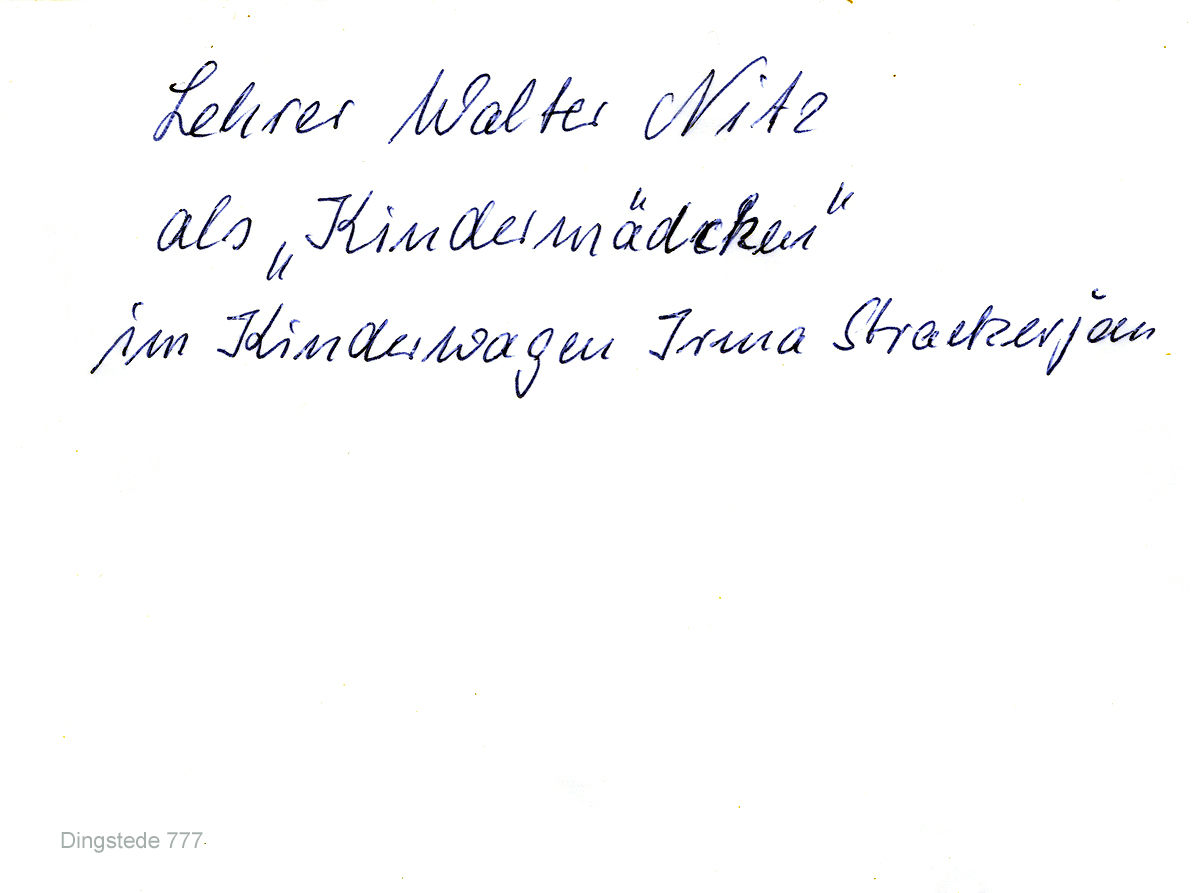 Lehrer Walter Nitz
als „Kindermädchen“
im Kinderwagen Irma Strackerjan
Dingstede 777